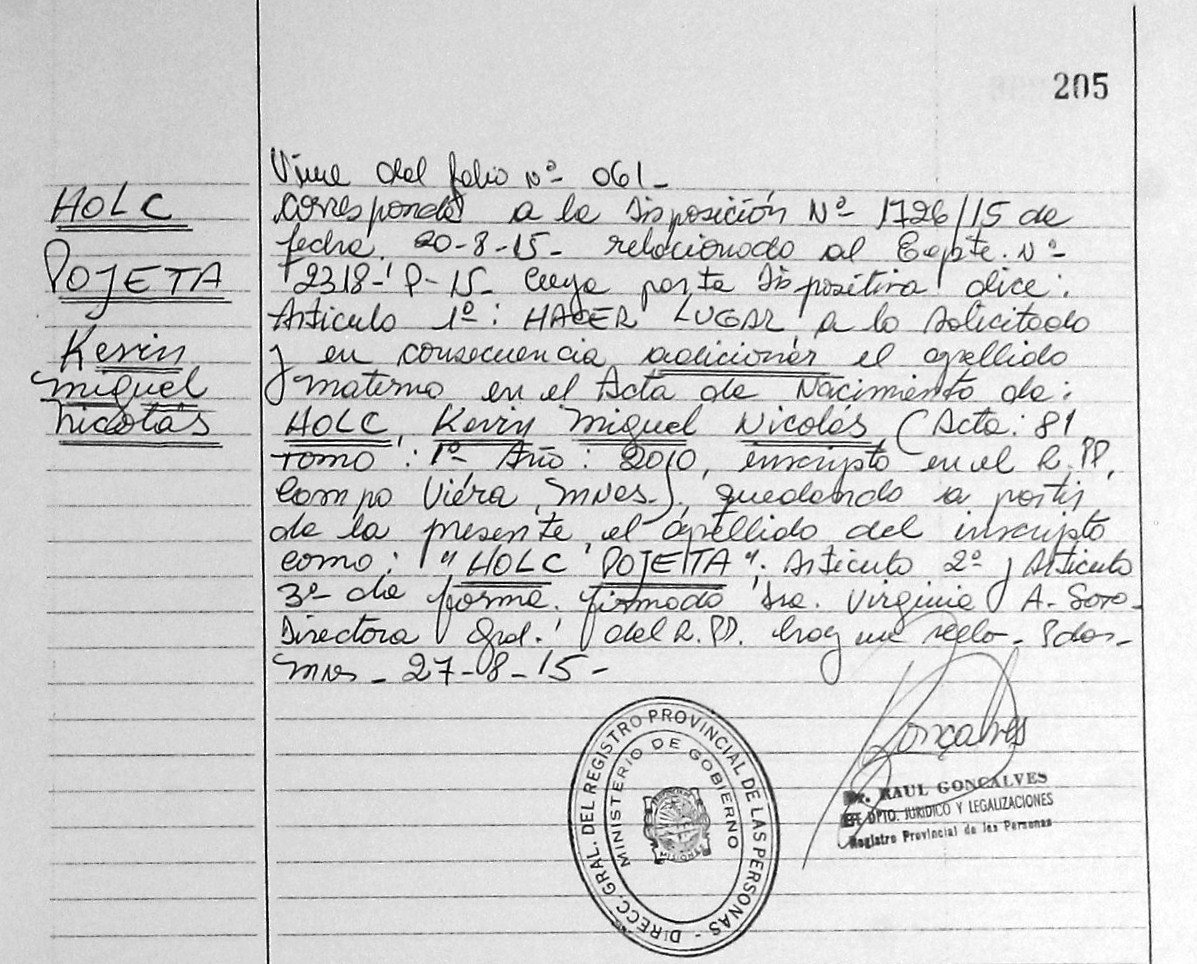 205
HOLC
POJETA
Kevin
Miguel
Nicolás
Viene del folio Nº 061_
Corresponde a la Disposición Nº 1726/15 de
fecha 20-8-15- relacionado al Expte. Nº
2318-P-15_ Cuya parte Dispositiva dice:
Articulo 1º: HACER LUGAR a lo solicitado
y en consecuencia adicionar el apellido
materno en el Acta de Nacimiento de:
HOLC, Kevin Miguel Nicolás (Acta: 81
Tomo: 1º Año: 2010, inscripto en el R.PP.
Campo Viera, Mnes.), quedando a partir
de la presente el apellido del inscripto
como: "HOLC POJETA". Articulo 2º y Articulo
3º de forma. firmado Dra. Virginia A. Soto-
Directora Gral. del R.PP. hay un sello- Pdas-
Mnes_ 27-8-15-
Gonçalves
Dr. RAUL GONCALVES
JEFE DPTO. JURIDICO Y LEGALIZACIONES
Registro Provincial de las Personas
DIRECC. GRAL. DEL REGISTRO PROVINCIAL DE LAS PERSONAS -
MINISTERIO DE GOBIERNO
MISIONES